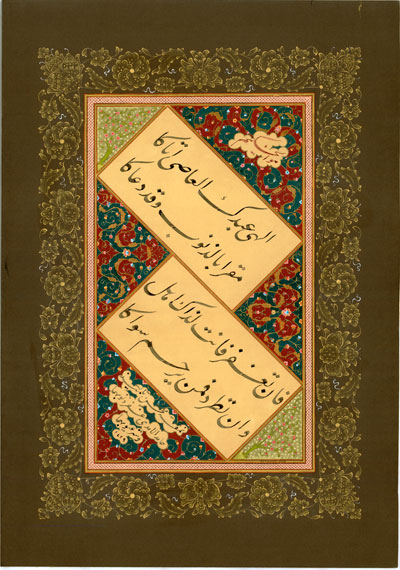 الهی عبدک العاصی اتاکا
مقرا بالذنوب وقد دعاکا
فان تغفر فانت لذاک اهل
وان تطرد فمن یرحم سواکا